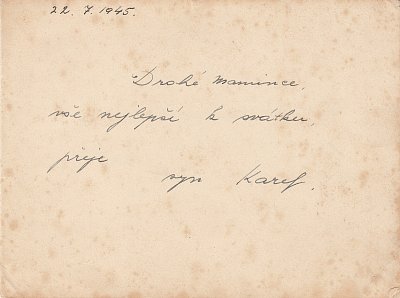 22. 7. 1945.
Drahé mamince,
vše nejlepší k svátku,
přeje
syn Karel.